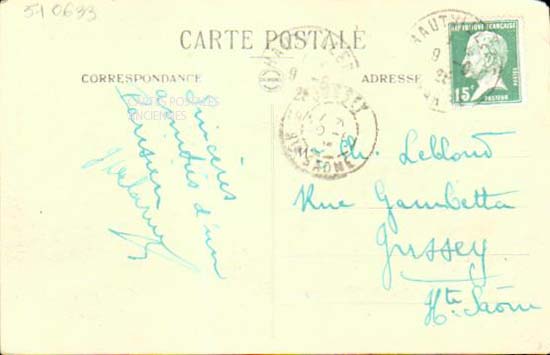 51 0633
CARTE POSTALE
CORRESPONDANCE
ADRESSE
CARTES POSTALES
ANCIENNES
RÉPUBLIQUE FRANÇAISE
15c
POSTES
PASTEUR
Sincères
amitiés d'un
Parisien
M. Ch. Leblond
Rue Gambetta
Jussey
Hte Saône